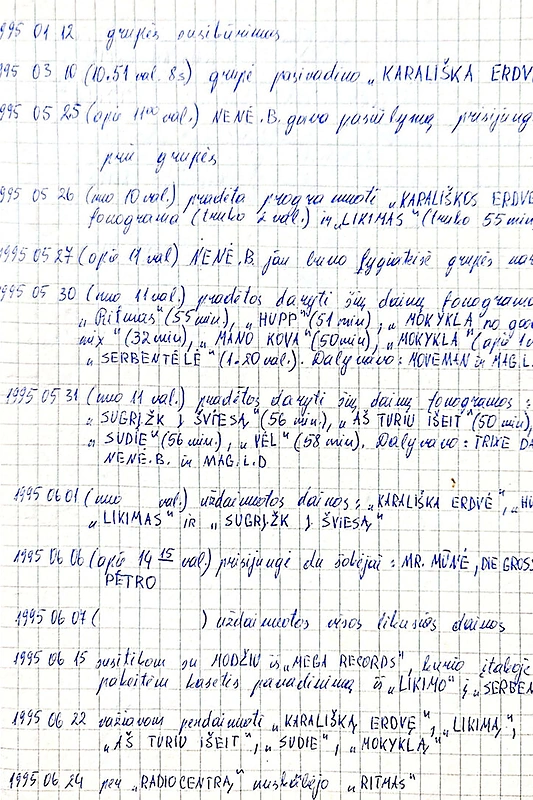 995 01 12 grupės susibūrimas
995 03 10 (10.51 val. 8s) grupė pasivadino „KARALIŠKA ERDV
995 05 25 (apie 11⁰⁰ val.) NENĖ.B. gavo pasiūlymą prisijung
prie grupės
995 05 26 (nuo 10 val.) pradėta programuoti „KARALIŠKOS ERDVĖ
fonograma (truko 2 val.) ir „LIKIMAS" (truko 55 min
1995 05 27 (apie 11 val) NENĖ.B. jau buvo lygiateisė grupės nar
995 05 30 (nuo 11 val.) pradėtos daryti šių dainų fonogramo
„Ritmas" (55 min), „HUPP" (51 min), „MOKYKLA no goo
mix" (32 min), „MANO KOVA" (50 min), „MOKYKLA" (apie 1
„SERBENTĖLĖ" (1.20 val.). Dalyvavo: MOVEMAN ir MAG.L.
1995 05 31 (nuo 11 val.) pradėtos daryti šių dainų fonogramos:
„SUGRĮŽK Į ŠVIESĄ" (56 min.), „AŠ TURIU IŠEIT" (50 min),
„SUDIE" (56 min.), „VĖL" (58 min). Dalyvavo: TRIXE DA
NENĖ.B. ir MAG.L.D
1995 06 01 (nuo val.) uždainuotos dainos: „KARALIŠKA ERDVĖ", „HU
„LIKIMAS" IR „SUGRĮŽK Į ŠVIESĄ"
1995 06 06 (apie 14 15 val.) prisijungė du šokėjai: MR. MŪNĖ, DIE GROS
PĖTRO
1995 06 07 ( ) uždainuotos visos likusios dainos
1995 06 15 susitikom su MODŽIU iš „MEGA RECORDS", kurio įtakoje
pakeitėm kasetės pavadinimą iš „LIKIMO" į „SERBEN
1995 06 22 važiavom perdainuoti „KARALIŠKĄ ERDVĘ", „LIKIMĄ",
„AŠ TURIU IŠEIT", „SUDIE", „MOKYKLĄ"
1995 06 24 per „RADIOCENTRĄ" nuskambėjo „RITMAS"